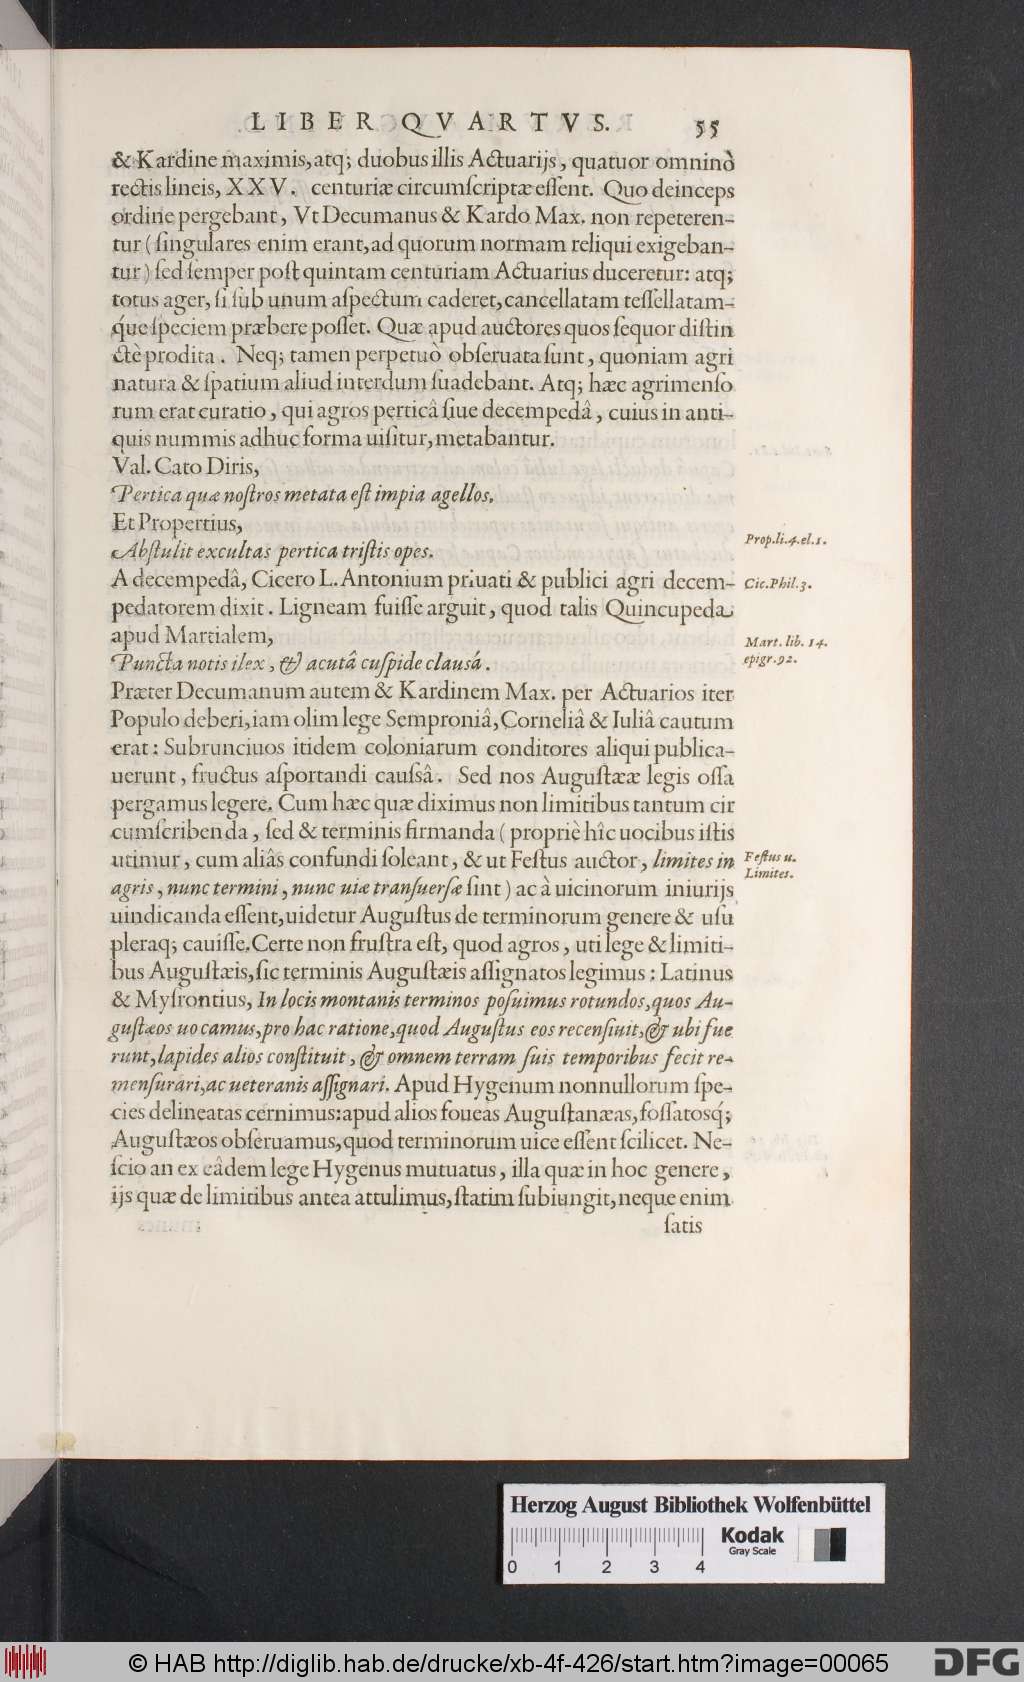 LIBER QVARTVS. 55
& Kardine maximis, atq; duobus illis Actuarijs, quatuor omninò
rectis lineis, XXV. centuriæ circumſcriptæ eſſent. Quo deinceps
ordine pergebant, Vt Decumanus & Kardo Max. non repeteren-
tur (ſingulares enim erant, ad quorum normam reliqui exigeban-
tur) ſed ſemper poſt quintam centuriam Actuarius duceretur: atq;
totus ager, ſi ſub unum aſpectum caderet, cancellatam teſſellatam-
q́ue ſpeciem præbere poſſet. Quæ apud auctores quos ſequor diſtin
ctè prodita. Neq; tamen perpetuò obſeruata ſunt, quoniam agri
natura & ſpatium aliud interdum ſuadebant. Atq; hæc agrimenſo
rum erat curatio, qui agros perticâ ſiue decempedâ, cuius in anti-
quis nummis adhuc forma uiſitur, metabantur.
Val. Cato Diris,
Pertica quæ noſtros metata eſt impia agellos.
Et Propertius,
Abſtulit excultas pertica triſtis opes.
Prop. li. 4. el. 1.
A decempedâ, Cicero L. Antonium priuati & publici agri decem-
Cic. Phil. 3.
pedatorem dixit. Ligneam fuiſſe arguit, quod talis Quincupeda
apud Martialem,
Mart. lib. 14.
epigr. 92.
Puncta notis ilex, & acutâ cuſpide clausá.
Præter Decumanum autem & Kardinem Max. per Actuarios iter
Populo deberi, iam olim lege Semproniâ, Corneliâ & Iuliâ cautum
erat: Subrunciuos itidem coloniarum conditores aliqui publica-
uerunt, fructus aſportandi cauſsâ. Sed nos Auguſtææ legis oſſa
pergamus legere. Cum hæc quæ diximus non limitibus tantum cir
cumſcribenda, ſed & terminis firmanda (propriè hîc uocibus iſtis
utimur, cum aliâs confundi ſoleant, & ut Feſtus auctor, limites in
Feſtus u.
Limites.
agris, nunc termini, nunc uiæ tranſuerſæ ſint) ac à uicinorum iniurijs
uindicanda eſſent, uidetur Auguſtus de terminorum genere & uſu
pleraq; cauiſſe. Certe non fruſtra eſt, quod agros, uti lege & limiti-
bus Auguſtæis, ſic terminis Auguſtæis aſſignatos legimus: Latinus
& Myſrontius, In locis montanis terminos poſuimus rotundos, quos Au-
guſtæos uocamus, pro hac ratione, quod Auguſtus eos recenſiuit, & ubi fue
runt, lapides alios conſtituit, & omnem terram ſuis temporibus fecit re-
menſurari, ac ueteranis aſſignari. Apud Hygenum nonnullorum ſpe-
cies delineatas cernimus: apud alios foueas Auguſtanæas, foſſatosq́;
Auguſtæos obſeruamus, quod terminorum uice eſſent ſcilicet. Ne-
ſcio an ex eâdem lege Hygenus mutuatus, illa quæ in hoc genere,
ijs quæ de limitibus antea attulimus, ſtatim ſubiungit, neque enim
ſatis
Herzog August Bibliothek Wolfenbüttel
0 1 2 3 4
Kodak
Gray Scale
© HAB http://diglib.hab.de/drucke/xb-4f-426/start.htm?image=00065
DFG